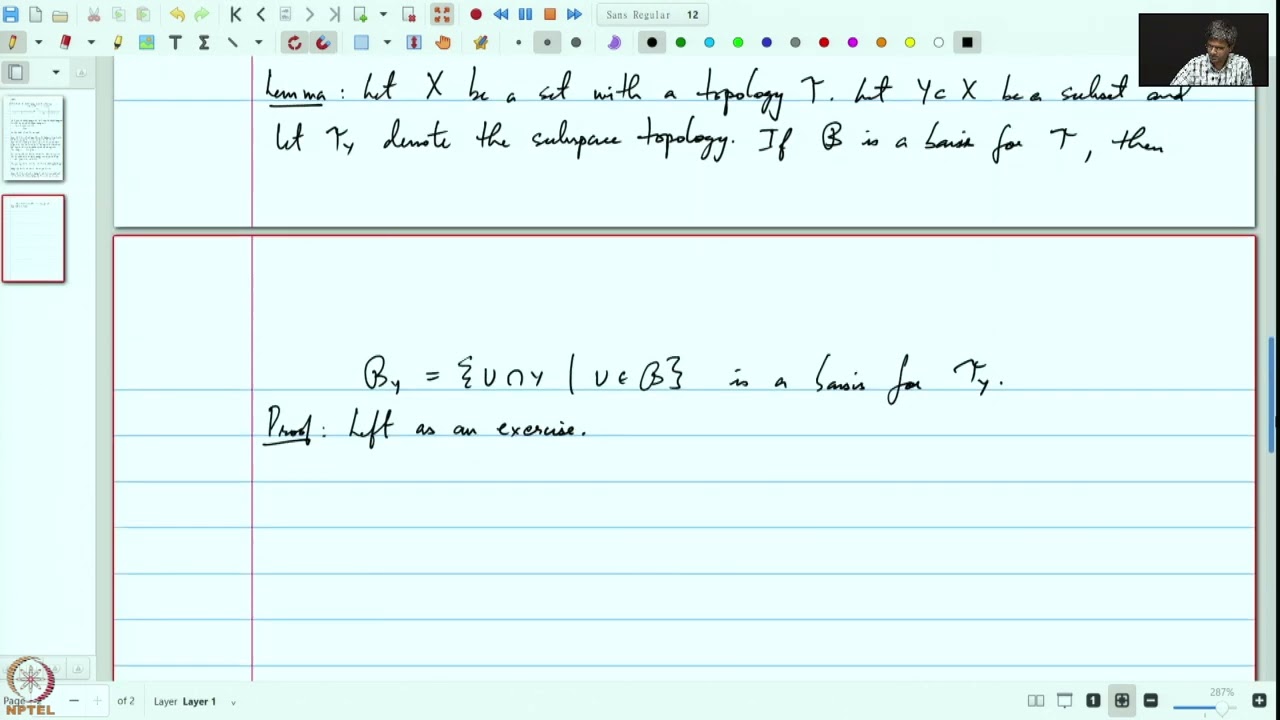 Sans Regular 12
Lemma : Let X be a set with a topology τ. Let Y ⊂ X be a subset and
let τ_Y denote the subspace topology. If B is a basis for τ, then
B_Y = {U ∩ Y | U ∈ B} is a basis for τ_Y.
Proof : Left as an exercise.
of 2 Layer Layer 1
287%
NPTEL